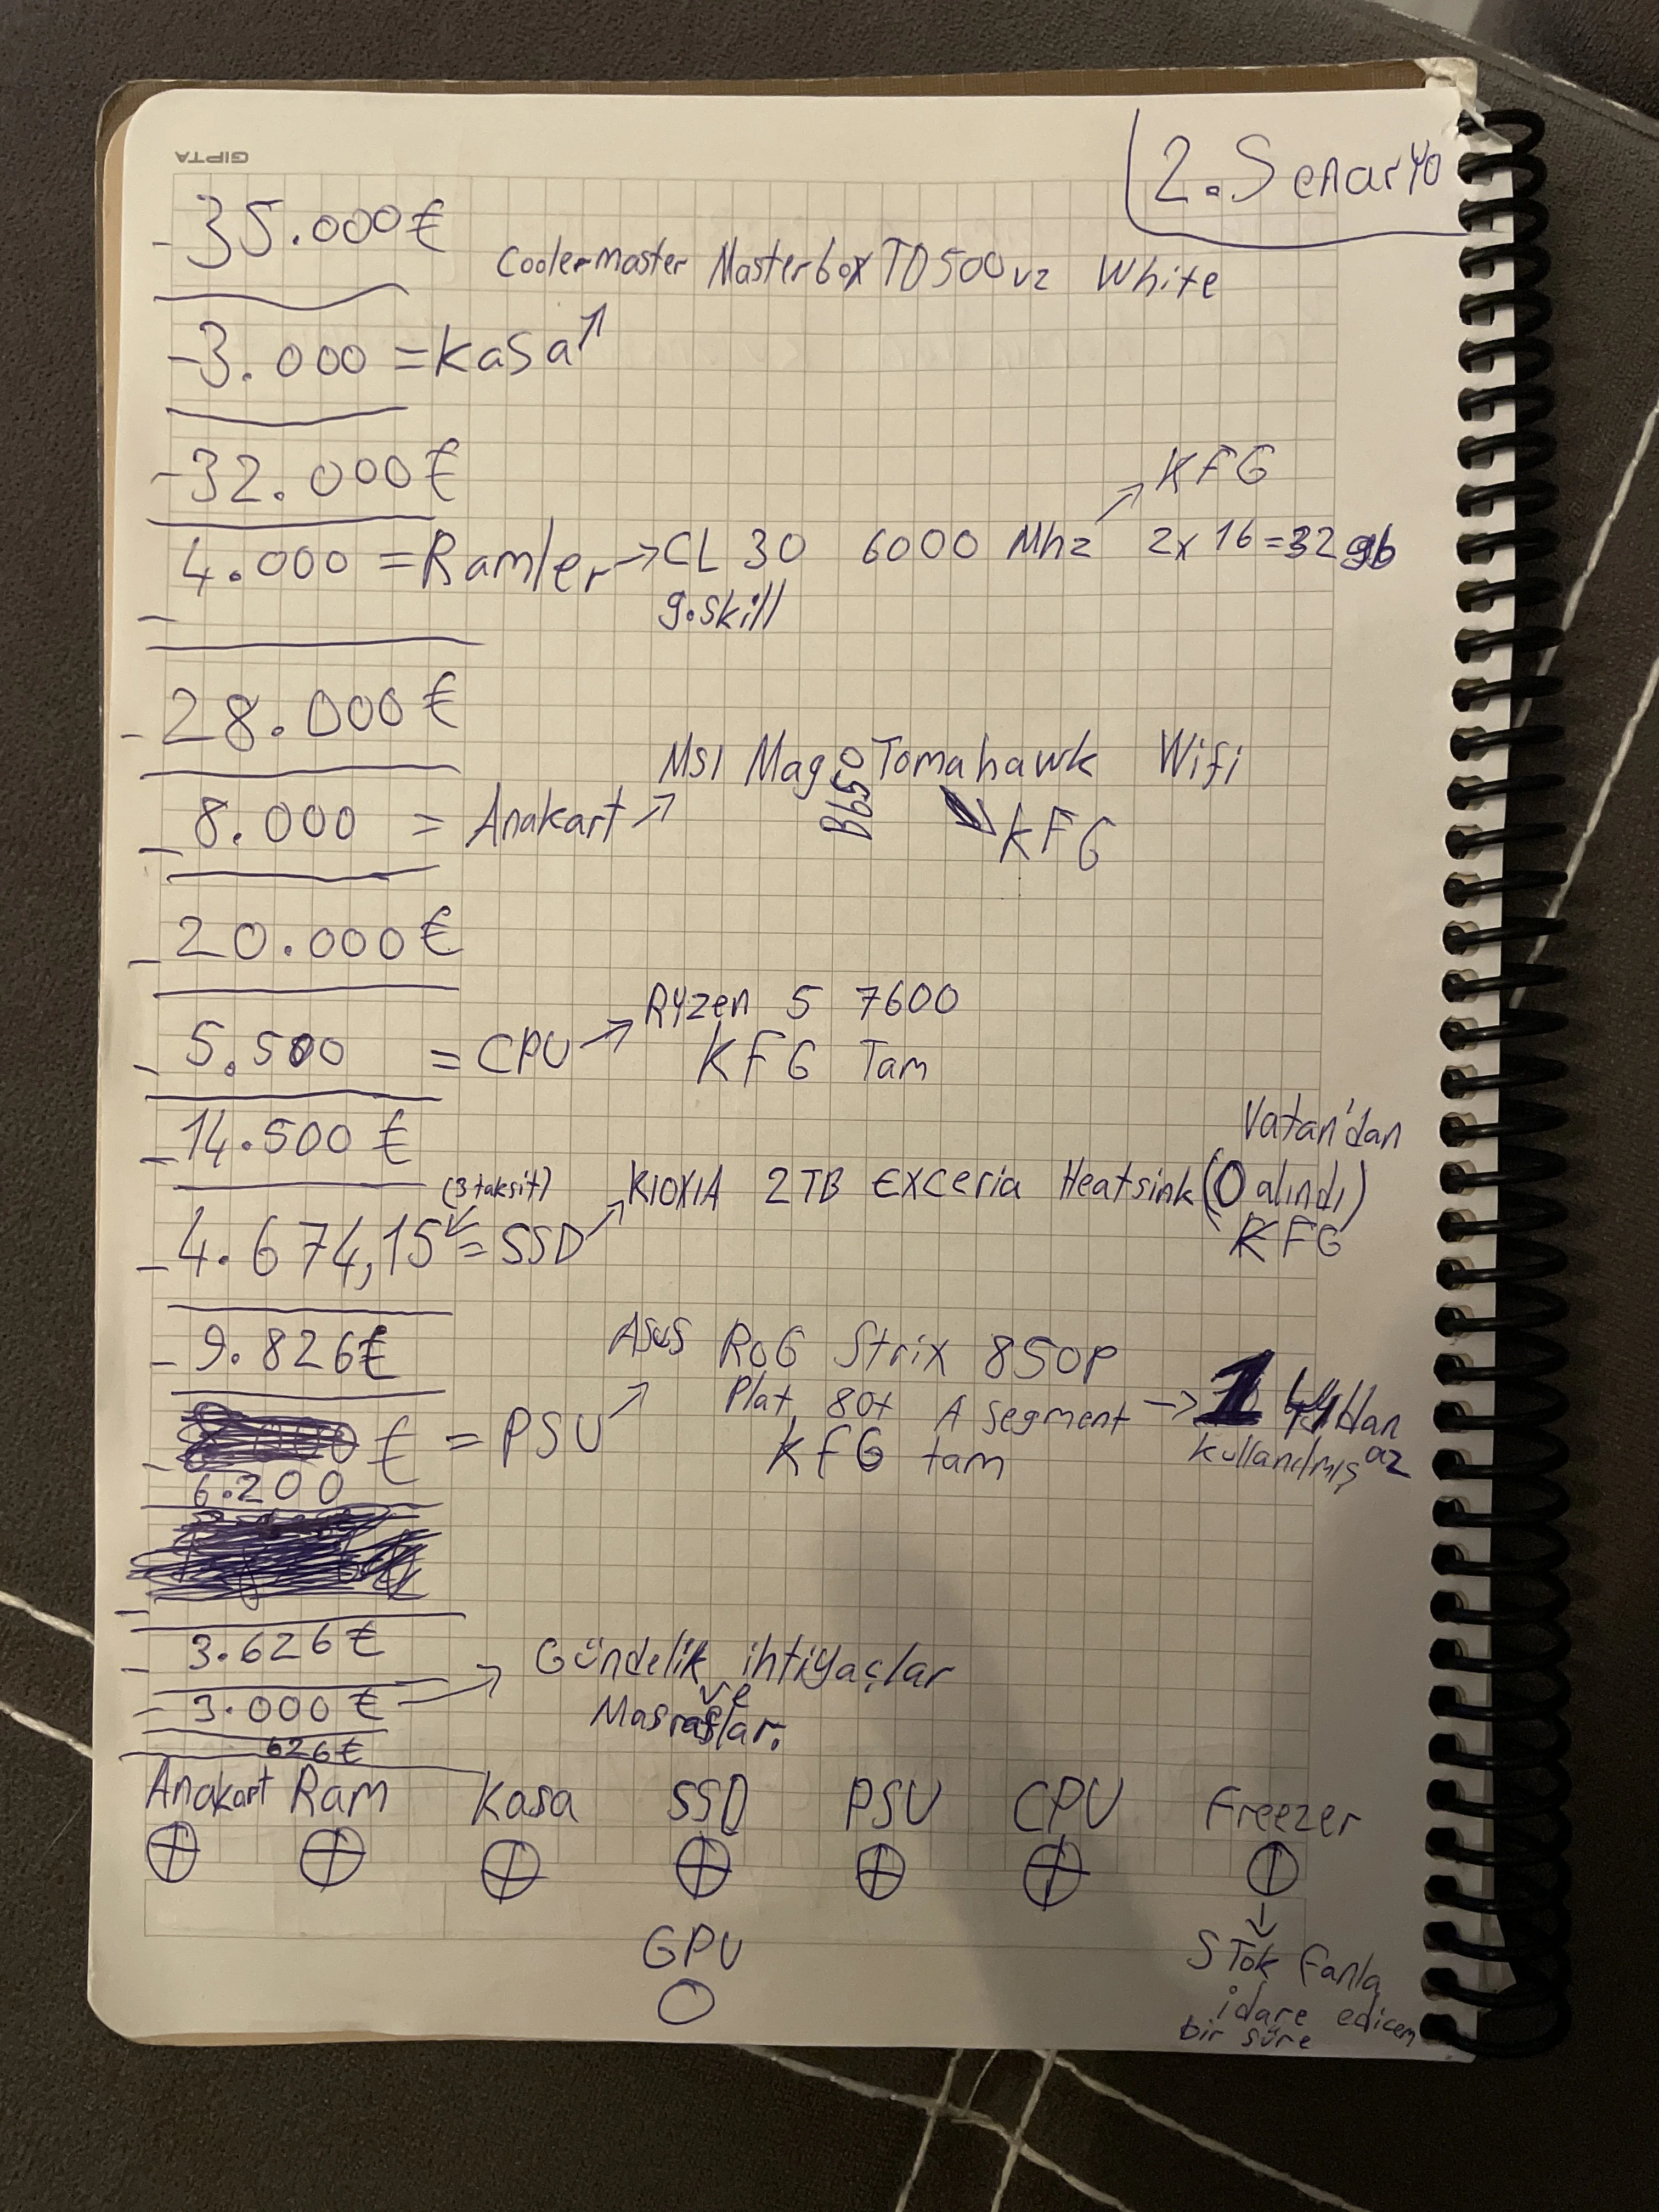 GIPTA
2. Senaryo
-35.000₺
Coolermaster Masterbox TD500 v2 White
-3.000 = Kasa ↑
-32.000₺
KFG
4.000 = Ramler → CL 30 6000 Mhz 2x16=32gb
g.skill
-28.000₺
MSI Mag B650 Tomahawk Wifi
-8.000 = Anakart
KFG
-20.000₺
Ryzen 5 7600
-5.500 = CPU →
KFG Tam
-14.500₺
Vatan'dan
(3 taksit)
KIOXIA 2TB EXceria Heatsink (0 alındı)
-4.674,15 = SSD
KFG
-9.826₺
Asus RoG Strix 850P
Plat, 80+ A segment → 1
₺ = PSU
KFG tam
kullanılmış az
6.200
-3.626₺
Gündelik ihtiyaçlar
-3.000₺ →
ve
Masraflar.
626₺
Anakart Ram Kasa SSD PSU CPU Freezer
GPU
STok fanla
idare edicem
bir süre